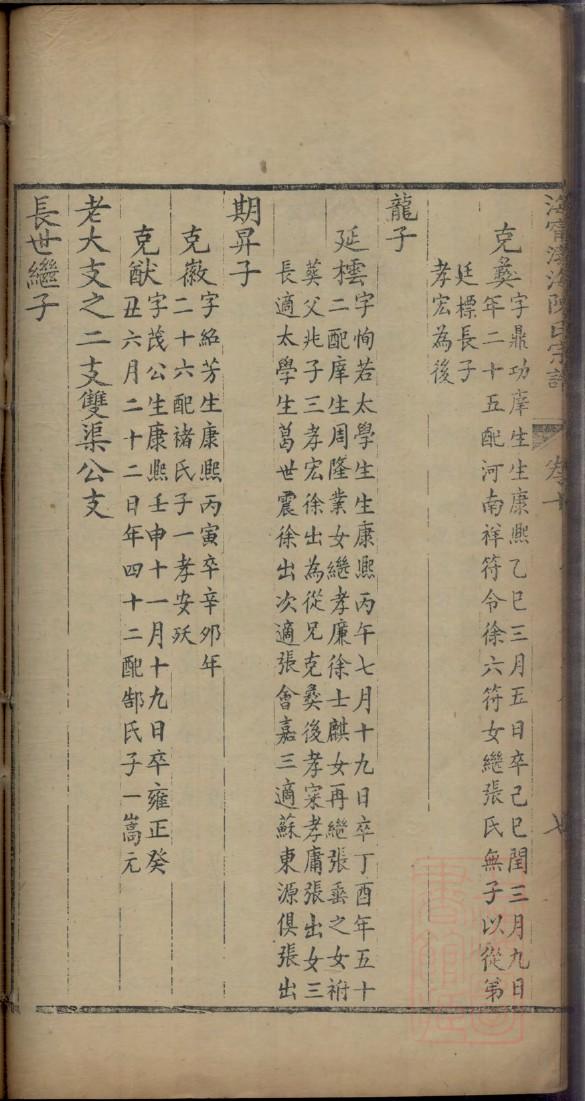 海寧渤海陳氏宗譜
卷十
克彝字鼎功庠生生康熙乙巳三月五日卒己巳閏三月九日
年二十五配河南祥符令徐六符女繼張氏無子以從弟
廷標長子
孝宏為後
龍子
延橒字恂若太學生生康熙丙午七月十九日卒丁酉年五十
二配庠生周隆業女繼孝廉徐士麒女再繼張垂之女祔
葬父兆子三孝宏徐出為從兄克彝後孝寀孝庸張出女三
長適太學生葛世震徐出次適張會嘉三適蘇東源俱張出
期昇子
克徽字紹芳生康熙丙寅卒辛卯年
二十六配褚氏子一孝安殀
克猷字茂公生康熙壬申十一月十九日卒雍正癸
丑六月二十二日年四十二配郜氏子一嵩元
老大支之二支雙渠公支
長世繼子